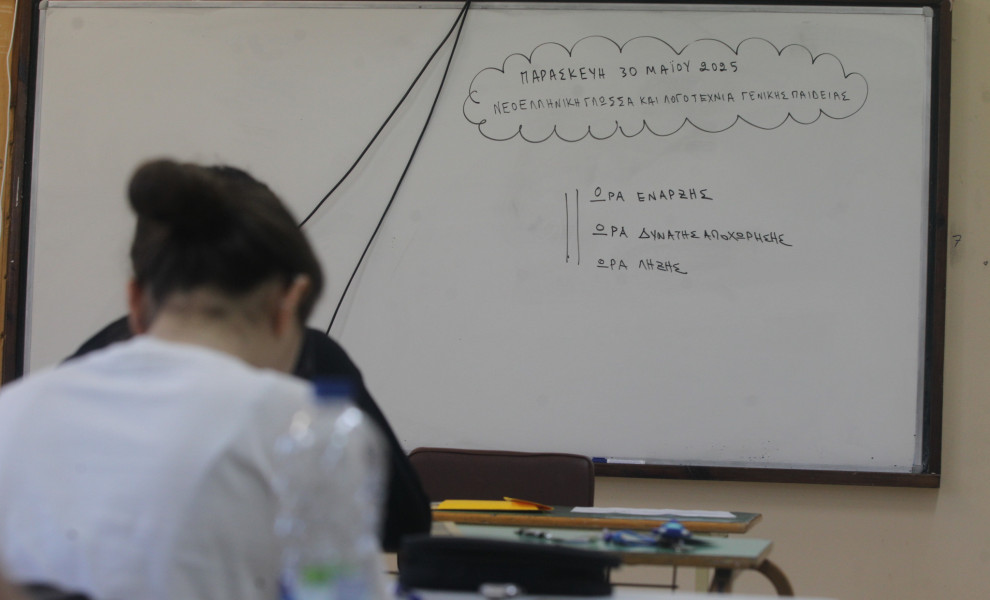 ΠΑΡΑΣΚΕΥΗ 30 ΜΑΪΟΥ 2025
ΝΕΟΕΛΛΗΝΙΚΗ ΓΛΩΣΣΑ ΚΑΙ ΛΟΓΟΤΕΧΝΙΑ ΓΕΝΙΚΗΣ ΠΑΙΔΕΙΑΣ
ΩΡΑ ΕΝΑΡΞΗΣ
ΩΡΑ ΔΥΝΑΤΗΣ ΑΠΟΧΩΡΗΣΗΣ
ΩΡΑ ΛΗΞΗΣ